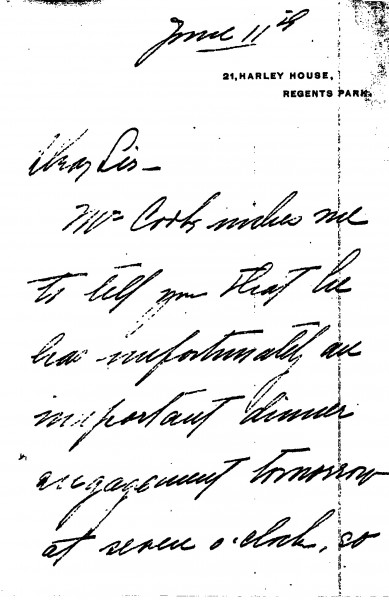 June 11th
21, HARLEY HOUSE,
REGENTS PARK.
Dear Sir –
Mr wishes me
to tell you that he
has unfortunately an
important dinner
engagement tomorrow
at seven o'clock, so